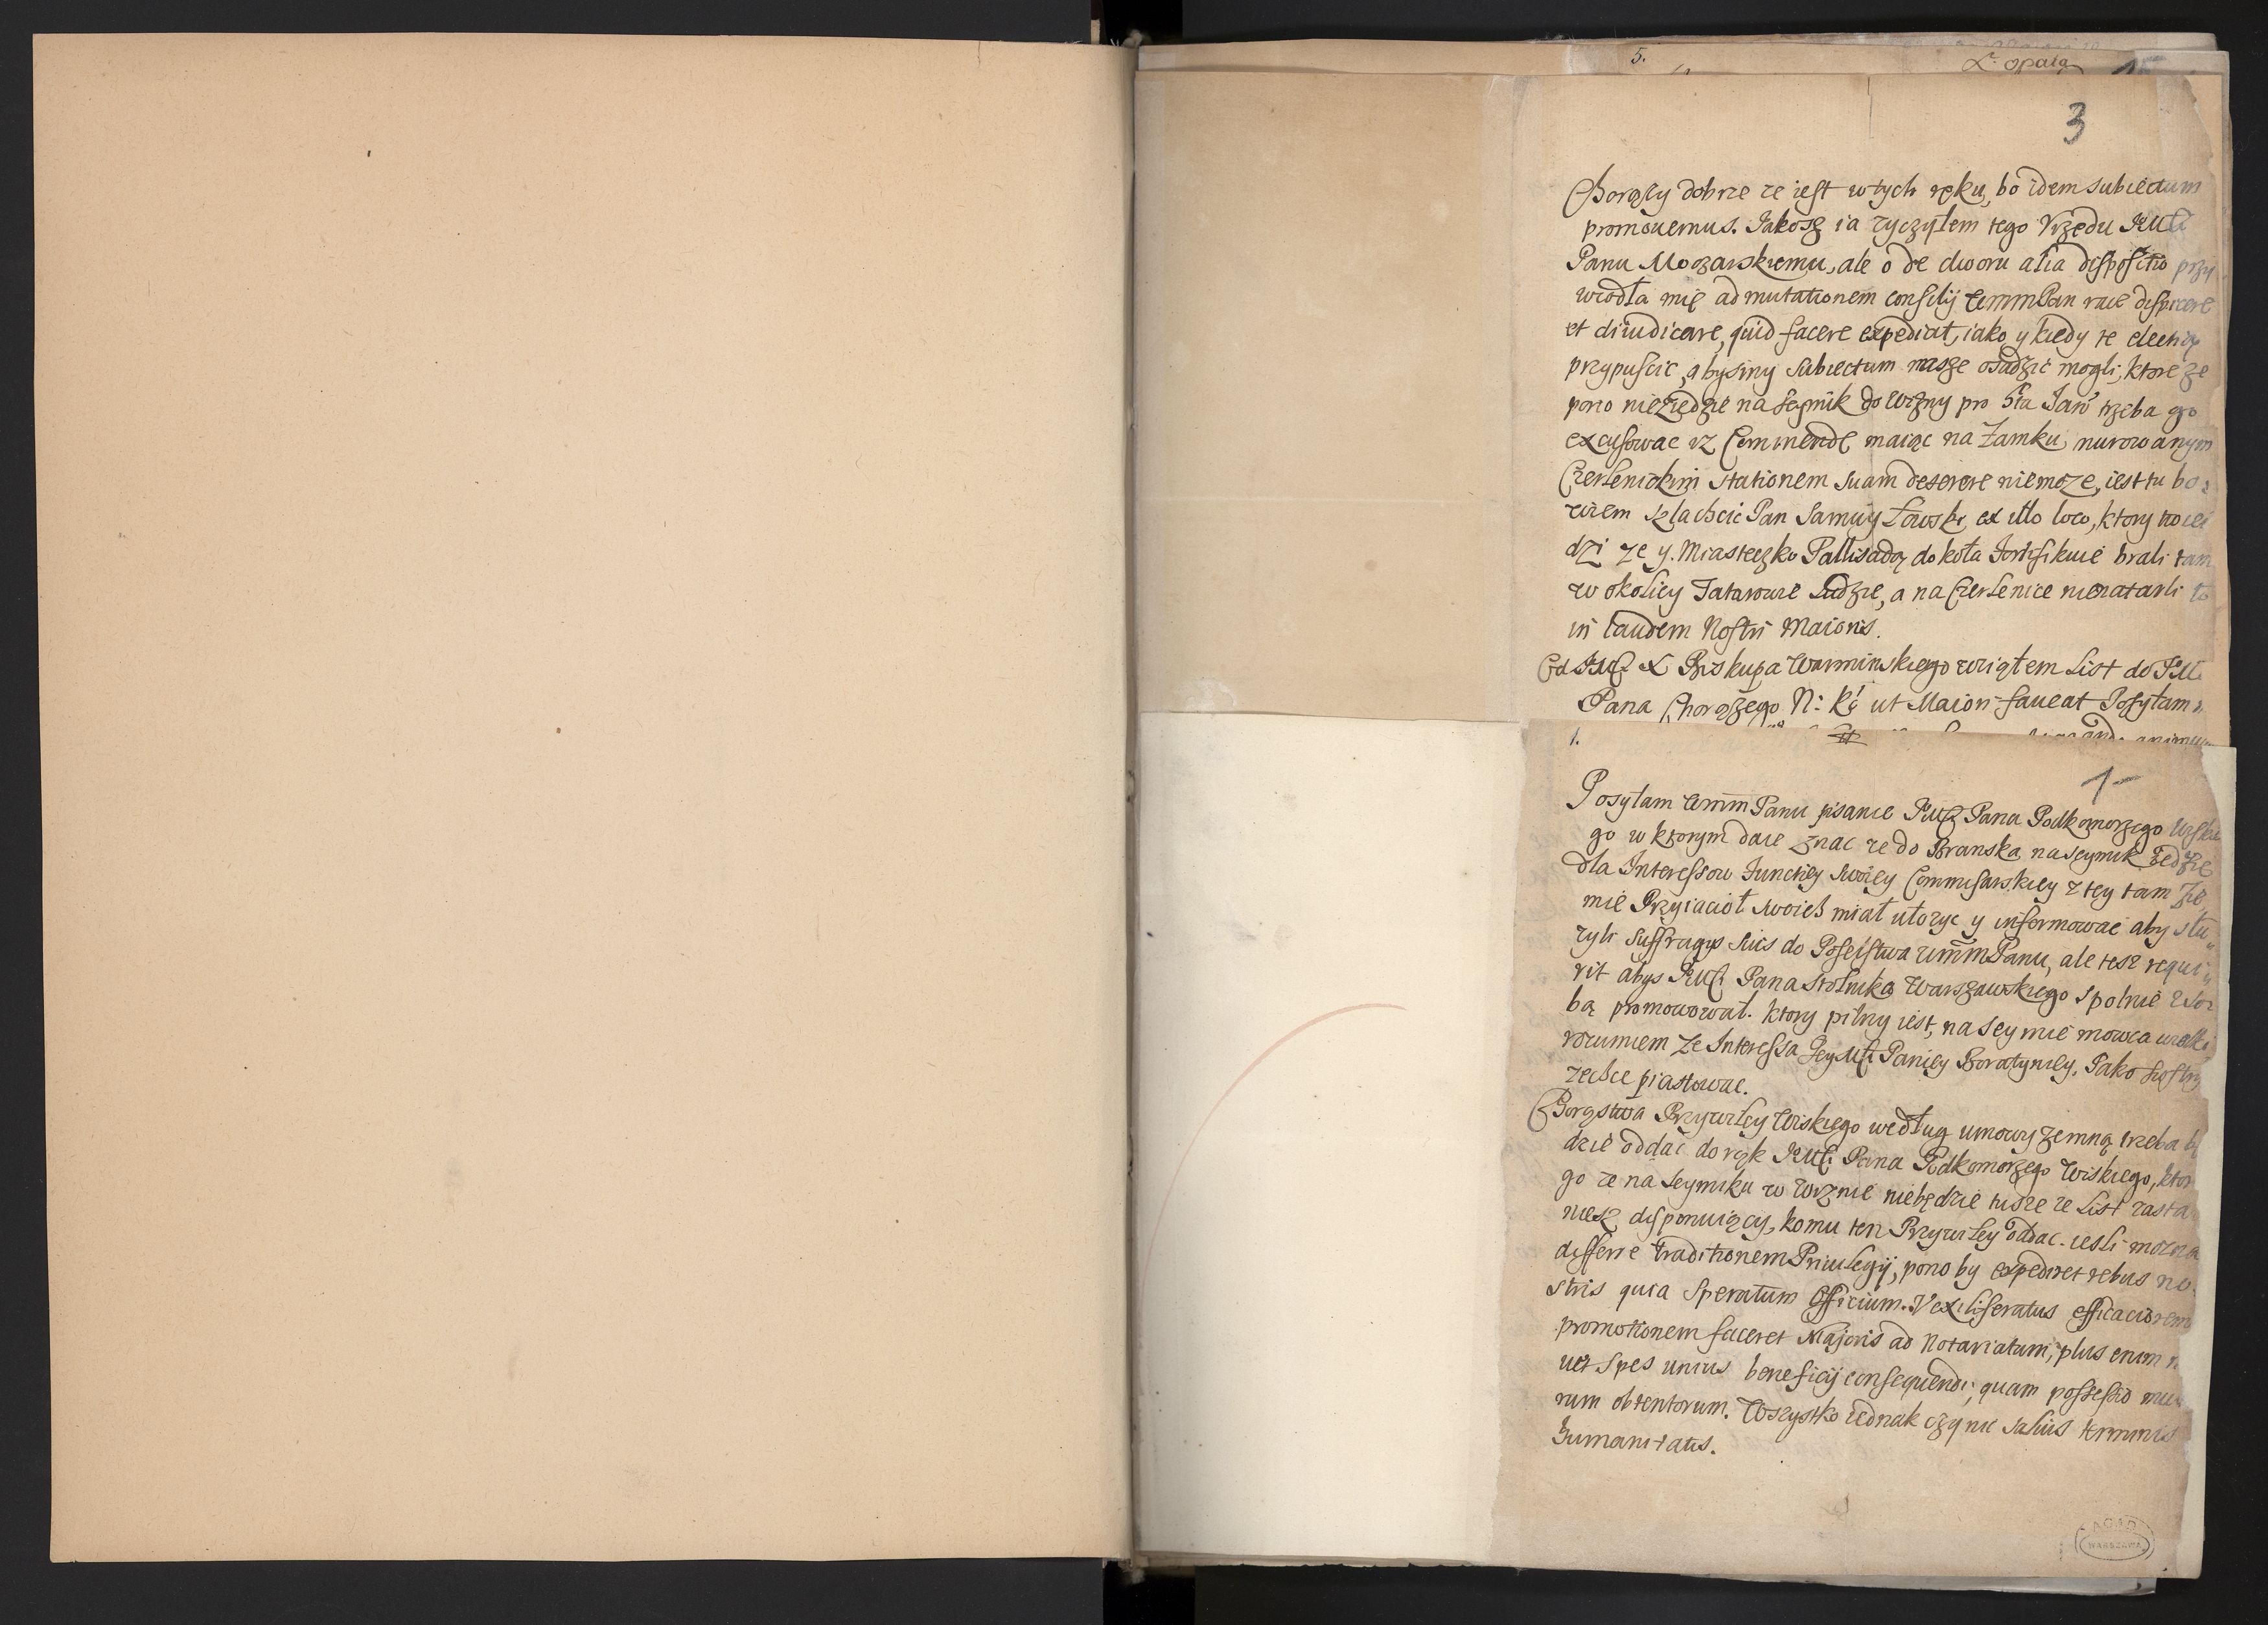 5.
3
Chorąży dobrze ze iest w tych ręku, bo idem subiectum
promouemus. Jakosz ia zyczyłem tego Vrzędu
Panu Moczarskiemu, ale o de dworu alia dispositio przy
wiodła mię ad mutationem consilij WmmPan racz dispicere
et diiudicare, quid facere expediat, iako y kiedy te electią
przypuscic, abysmy subiectum nasze osadzic mogli, ktore ze
pono nieziedzie na seymik do Wizny pro trzeba go
excusowac iz Commendę maiąc na Zamku murowanym
stationem suam deserere niemoze, iest tu bo
wiem szlachcic Pan ex illo loco, ktory
dzi ze y. Miasteczko Pallisadą dokoła fortifikuie brali tam
w okolicy Tatarowie Ludzie, a na nienatarli to
in laudem Nostri Maioris.
Od X Biskupa Warminskiego wziąłem List do
Pana Chorążego N: ut Maiori faueat Posyłam
1.
1
Posyłam WmmPanu pisanie Pana Podkomorzego
go w ktorym daie znac ze do Branska na seymik
dla Interessow Functiey swoiey Commisarskiey z tey tam Zie
mie Przyiacioł swoich miał ułozyc y informowac aby słu
zyli suffragys suis do Poselstwa WmmPanu, ale tesz requi
rit abys Pana Stolnika Warszawskiego spolnie z sob
bą promowował. ktory pilny iest, na seymie mowca wielki
rozumiem ze Interessa Paniey Boratyniey, Jako siostry
zechce piastowac.
Chorąstwa Przywiley Wiskiego według umowy zemną trzeba bę
dzie oddac do rąk Pana Podkomorzego Wiskiego, ktor
go ze na seymiku w Wiznie niebędzie tusze ze List zasta
nies disponuiący, komu ten Przywiley oddac. iesli mozna
differre traditionem Priuilegij, pono by expediret rebus no
stris quia speratum Officium Vexiliferatus efficaciorem
promotionem faceret Majoris ad Notariatum, plus enim
uet spes unius beneficij consequendi, quam possessio
rum obtentorum. Wszystko iednak czynie saluis terminis
humanitatis.
AGAD
WARSZAWA